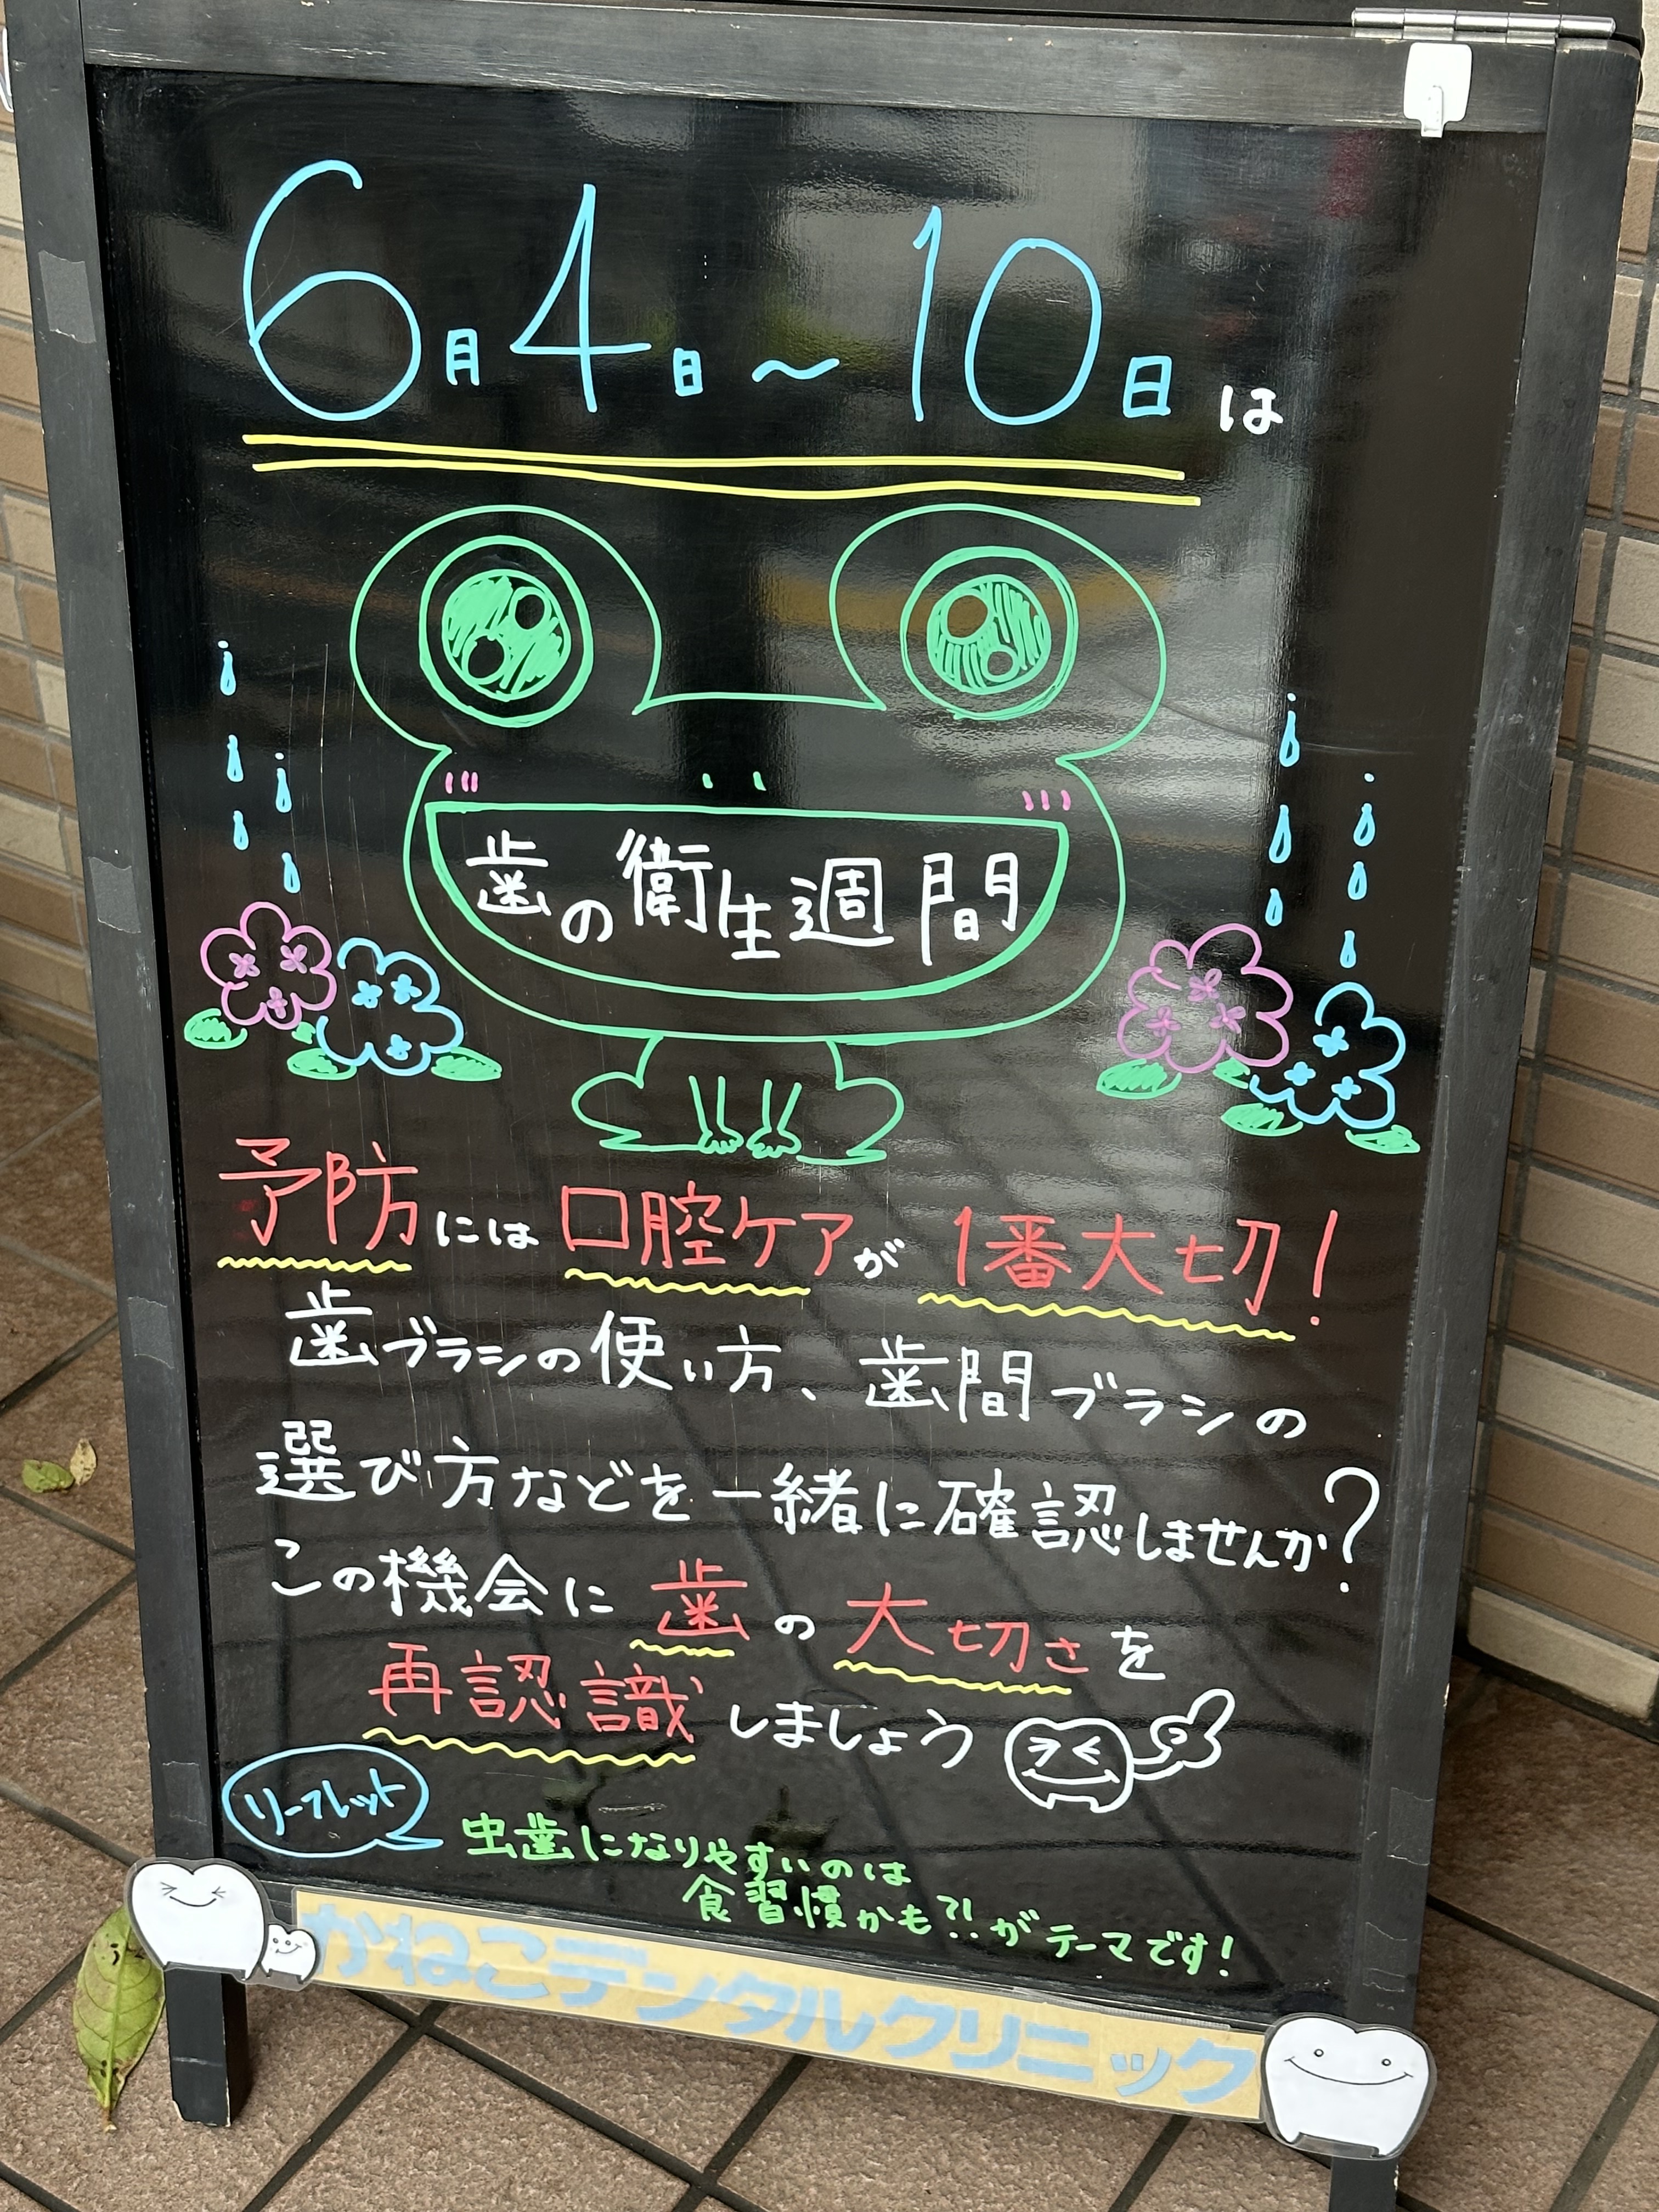 6月4日～10日は
歯の衛生週間
予防には口腔ケアが1番大切!
歯ブラシの使い方、歯間ブラシの
選び方などを一緒に確認しませんか?
この機会に歯の大切さを
再認識しましょう
リーフレット
虫歯になりやすいのは
食習慣かも?!がテーマです!
かねこデンタルクリニック